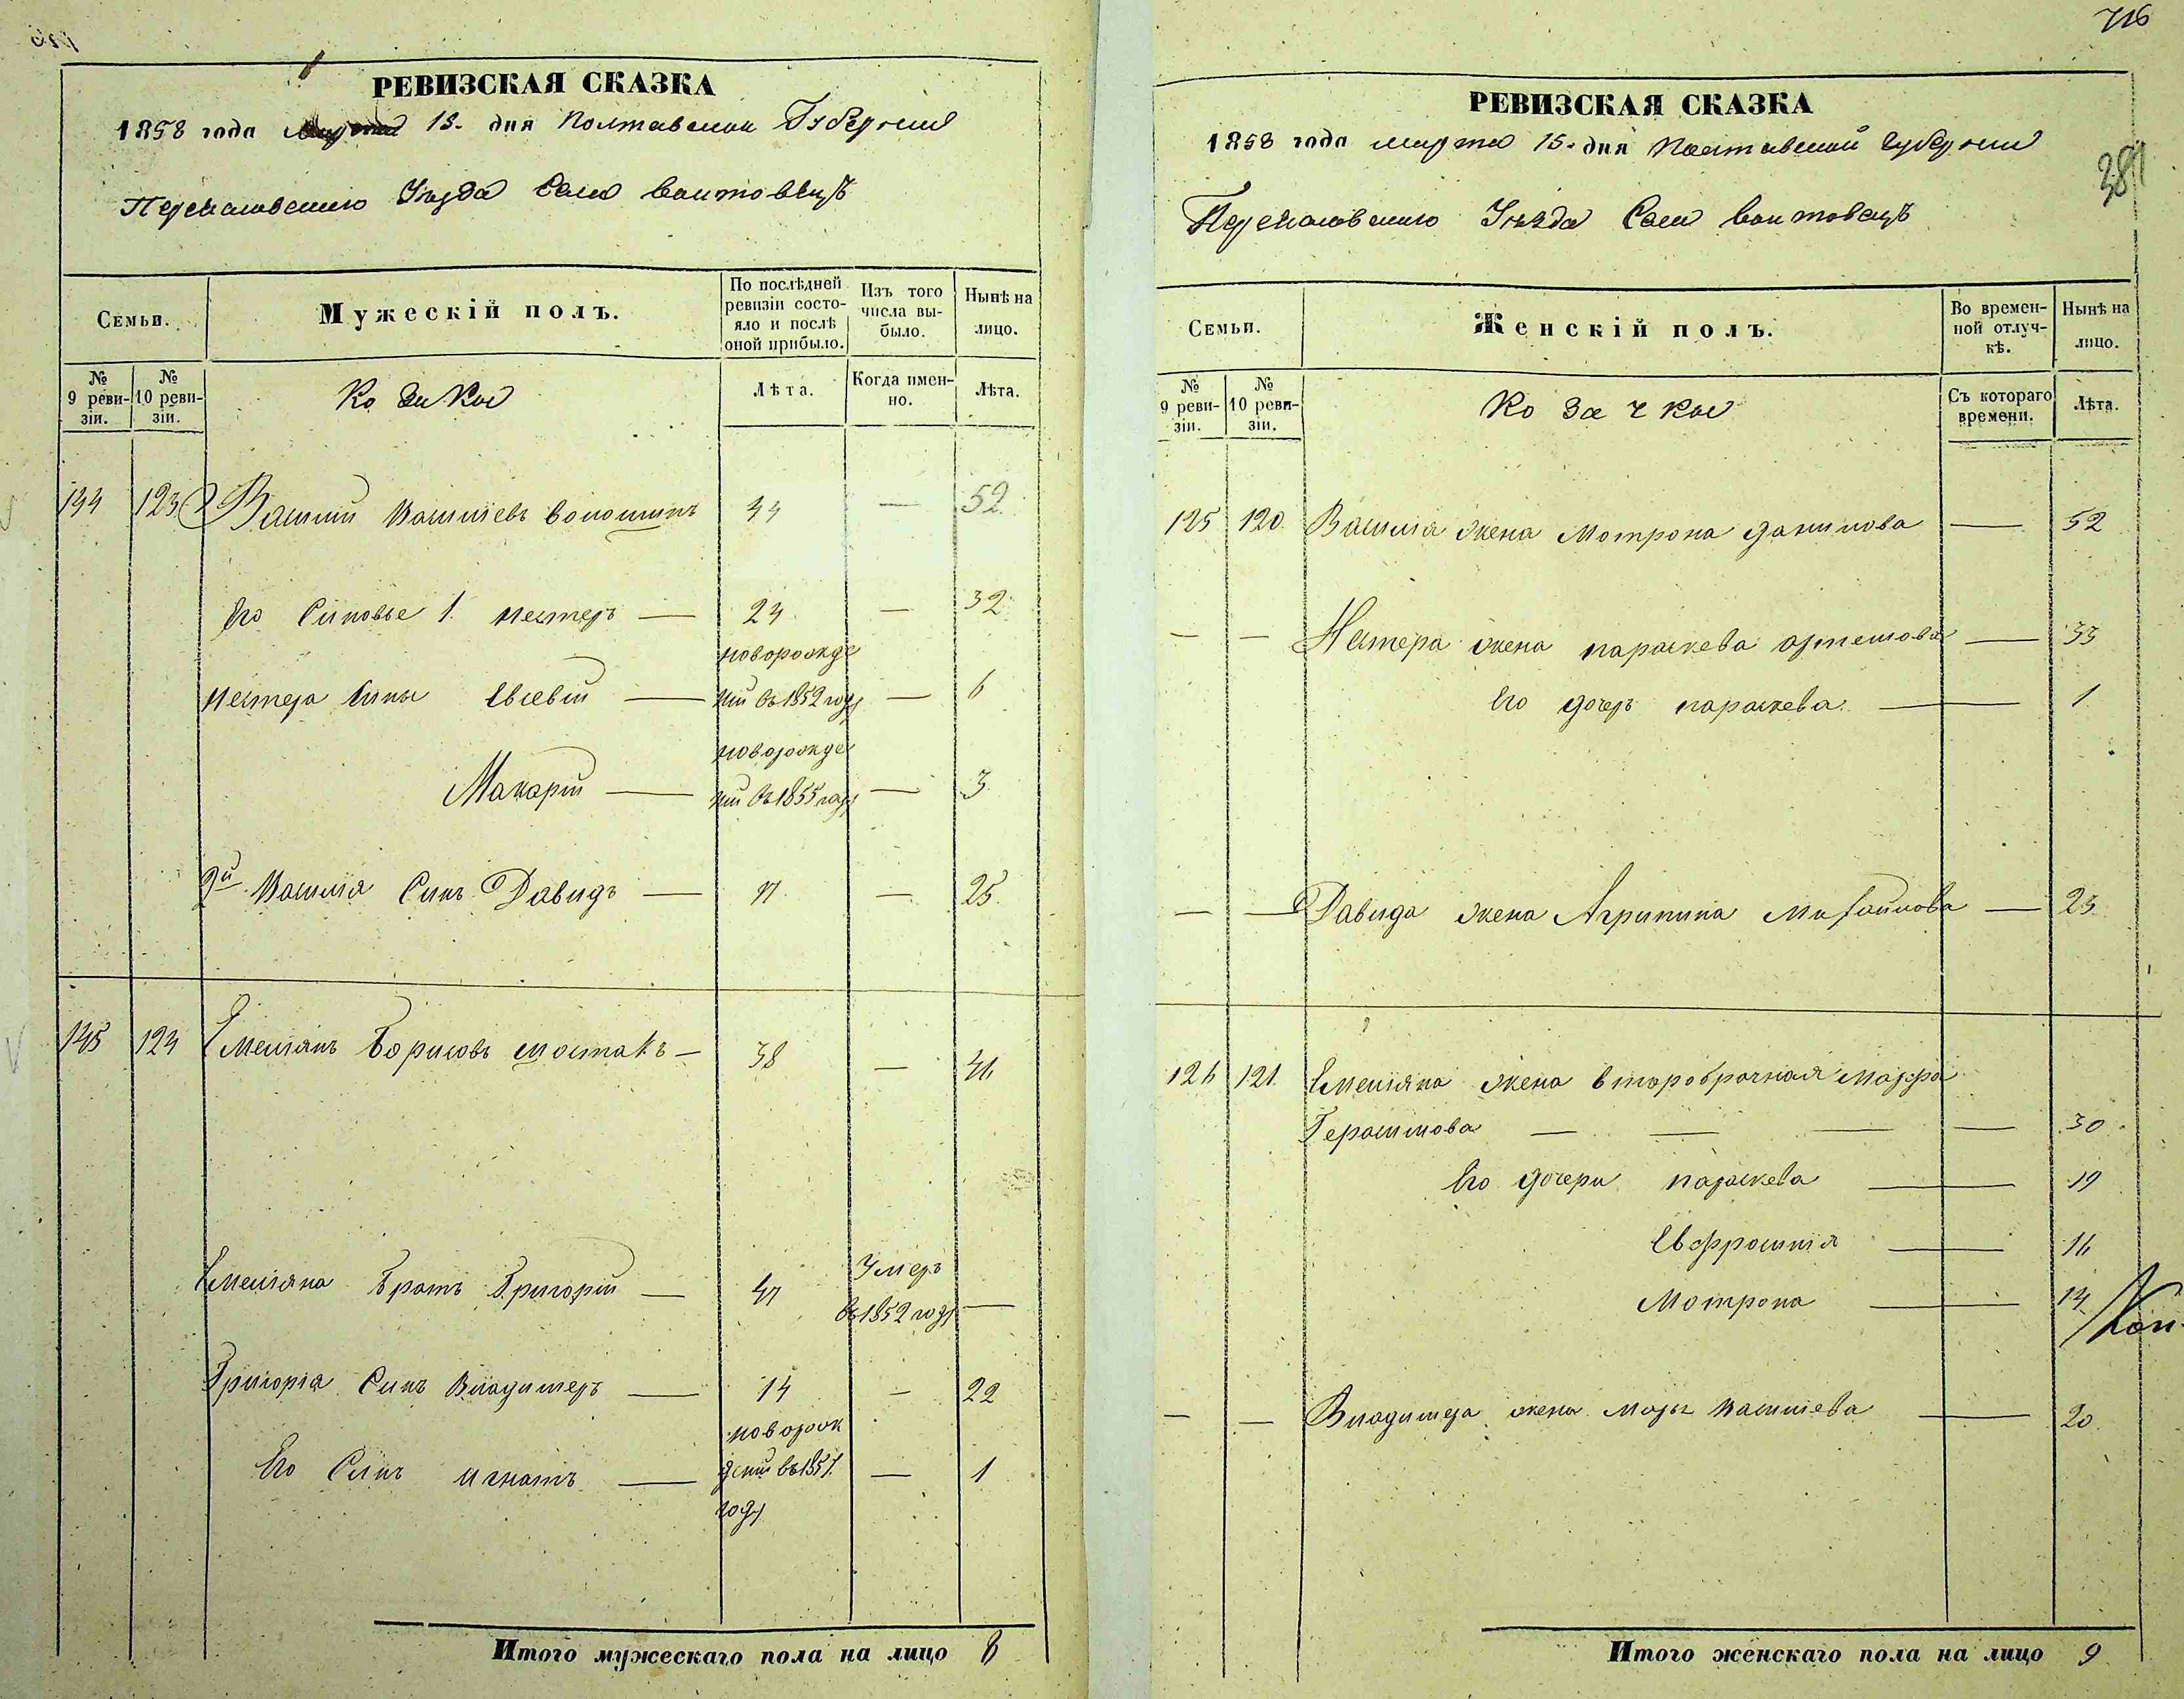 РЕВИЗСКАЯ СКАЗКА
1858 года марта 15. дня Полтавской Губернии
Переяславскаго Уезда Села Войтовецъ
Семьи.
Мужескій полъ.
По послѣдней ревизіи состо-
яло и послѣ
оной прибыло.
Изъ того
числа вы-
было.
Нынѣ на
лицо.
№
9 реви-
зіи.
№
10 реви-
зіи.
Козаки
Лѣта.
Когда имен-
но.
Лѣта.
144 123 Василий Василіевъ Волошинъ 44 — 52
Его Синовье 1. Нестеръ — 24 — 32
Нестера Сины Евсевій — новорожде
ний въ 1852 году — 6
Макарий — новорожде
ний въ 1855 году — 3
2й Василія Синъ Давидъ — 17 — 25
145 124 Емелянъ Борисовъ Шостакъ — 38 — 46
Емеляна Братъ Григорій — 47 Умеръ
въ 1852 году —
Григорія Синъ Владимеръ — 14 — 22
Его Синъ Игнатъ — новорож
дений въ 1857
году — 1
Итого мужескаго пола на лицо 8
716
381
РЕВИЗСКАЯ СКАЗКА
1858 года марта 15. дня Полтавской Губернии
Переяславскаго Уезда Села Войтовецъ
Семьи.
Женскій полъ.
Во времен-
ной отлуч-
кѣ.
Нынѣ на
лицо.
№
9 реви-
зіи.
№
10 реви-
зіи.
Козачки
Съ котораго
времени.
Лѣта.
125 120 Василия жена Мотрона Данилова — 52
— — Нестера жена Параскева Артемова — 33
Его дочеръ Параскева — 1
— — Давида жена Агрипина Михайлова — 25
126 121 Емеляна жена второбрачная Марфа
Герасимова — — — — 30
Его дочери Параскева — 19
Евфросинія — 16
Мотрона — 14
— — Владимера жена Василиева — 20
Итого женскаго пола на лицо 9